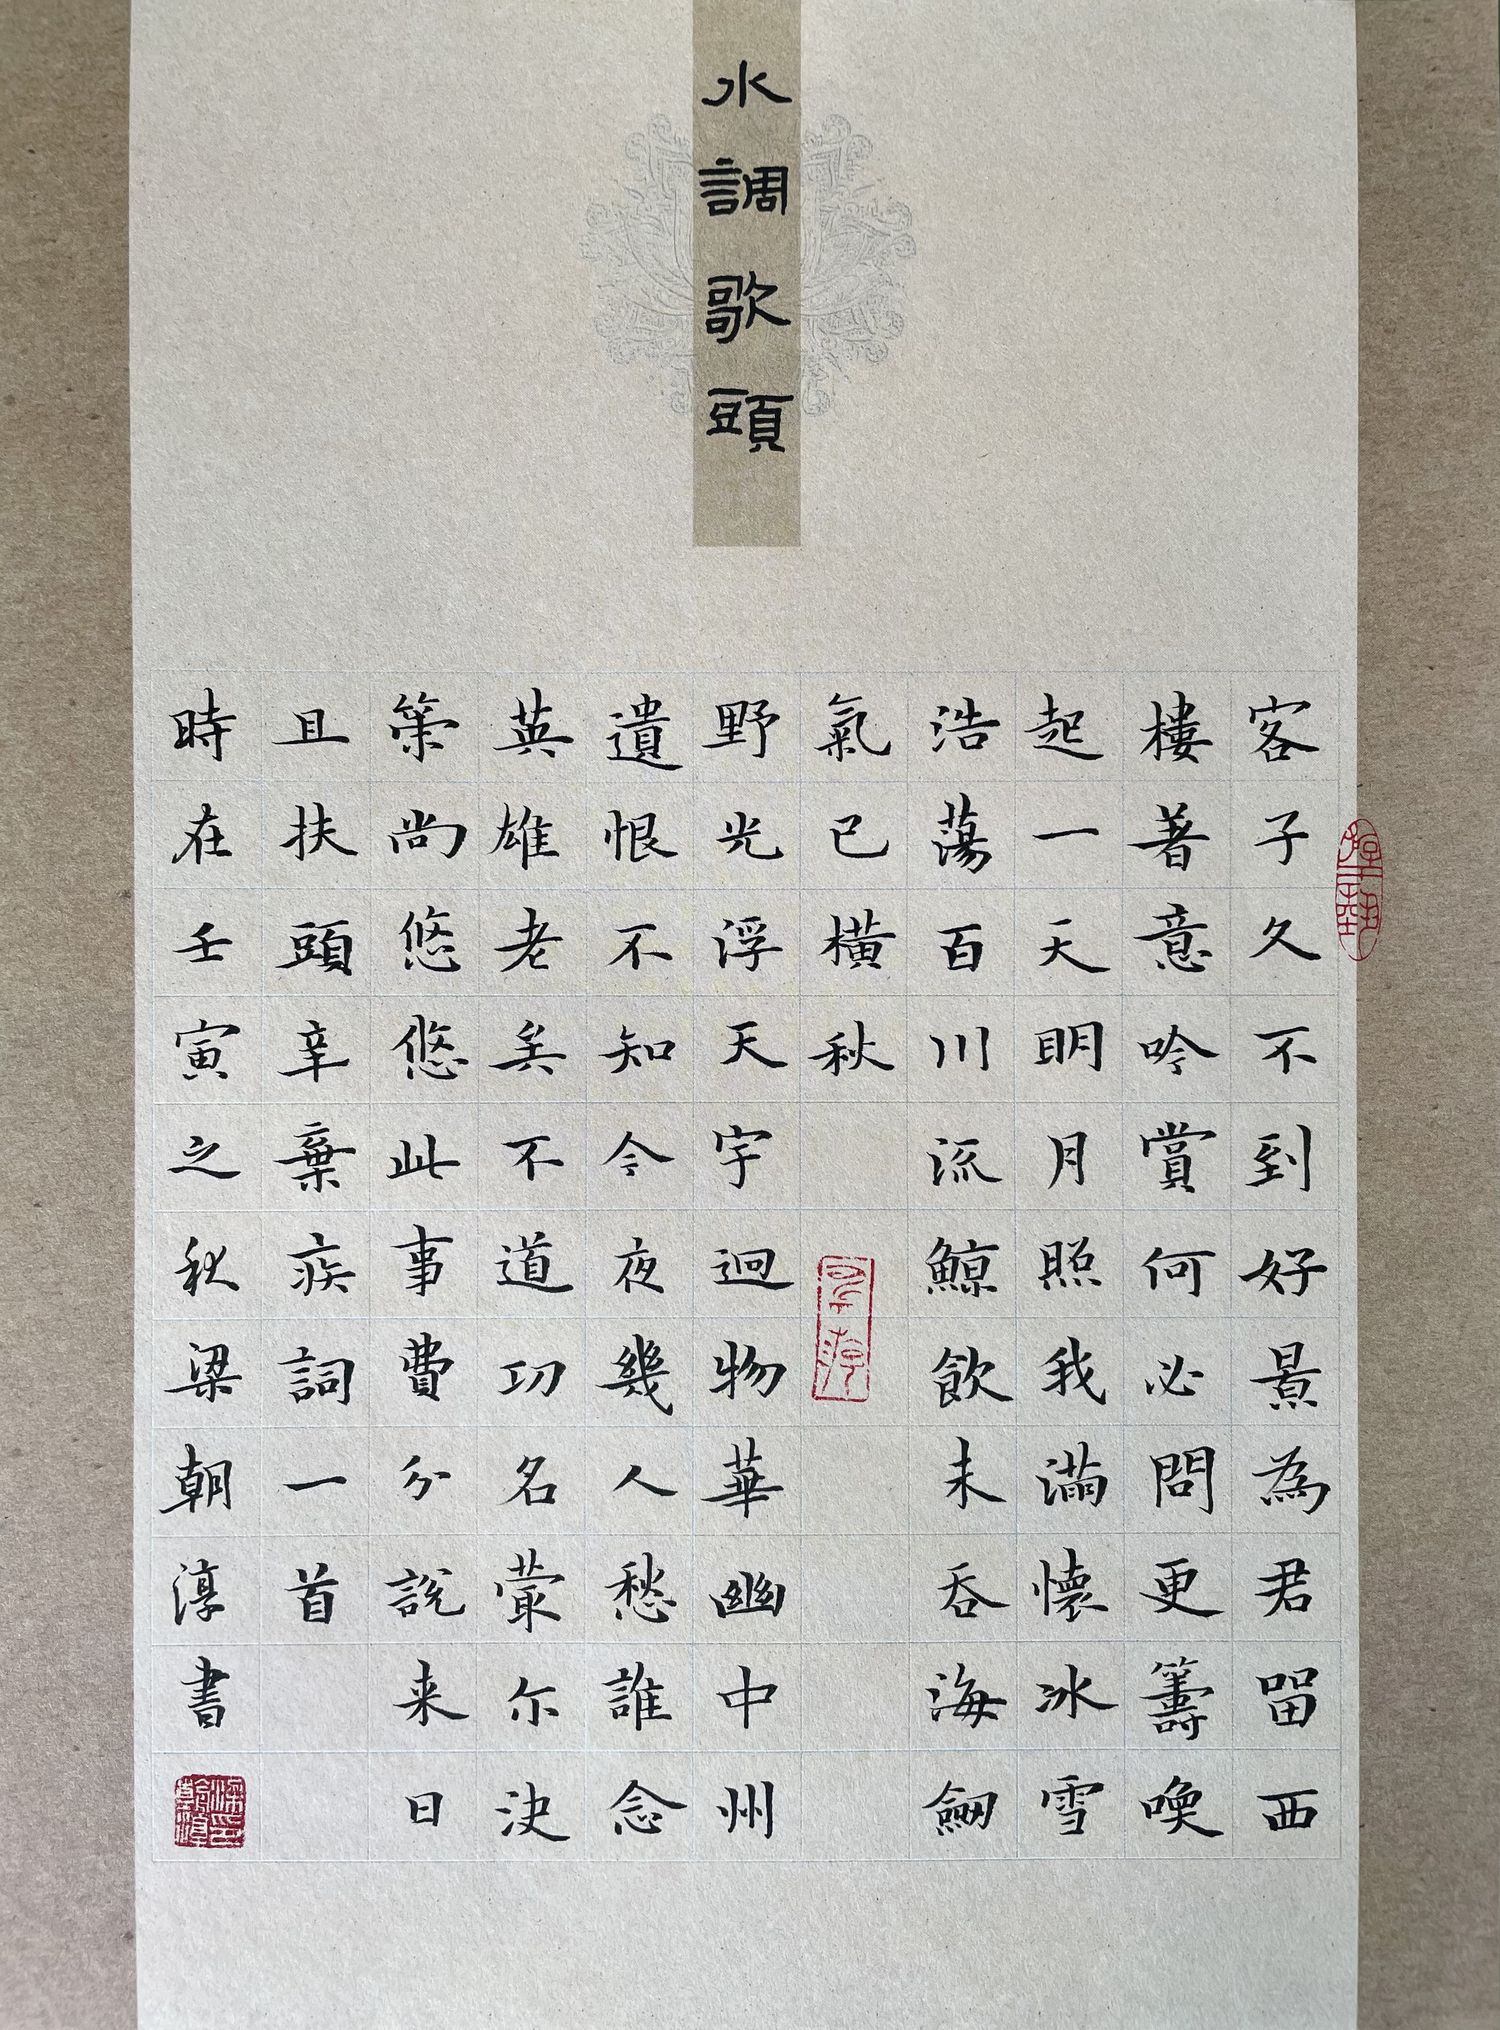 水調歌頭
客子久不到好景為君留西
樓著意吟賞何必問更籌喚
起一天明月照我滿懷冰雪
浩蕩百川流鯨飲未吞海劒
氣已橫秋
野光浮天宇迥物華幽中州
遺恨不知今夜幾人愁誰念
英雄老矣不道功名蕞尔決
策尚悠悠此事費分說来日
且扶頭辛棄疾詞一首
時在壬寅之秋梁朝淳書